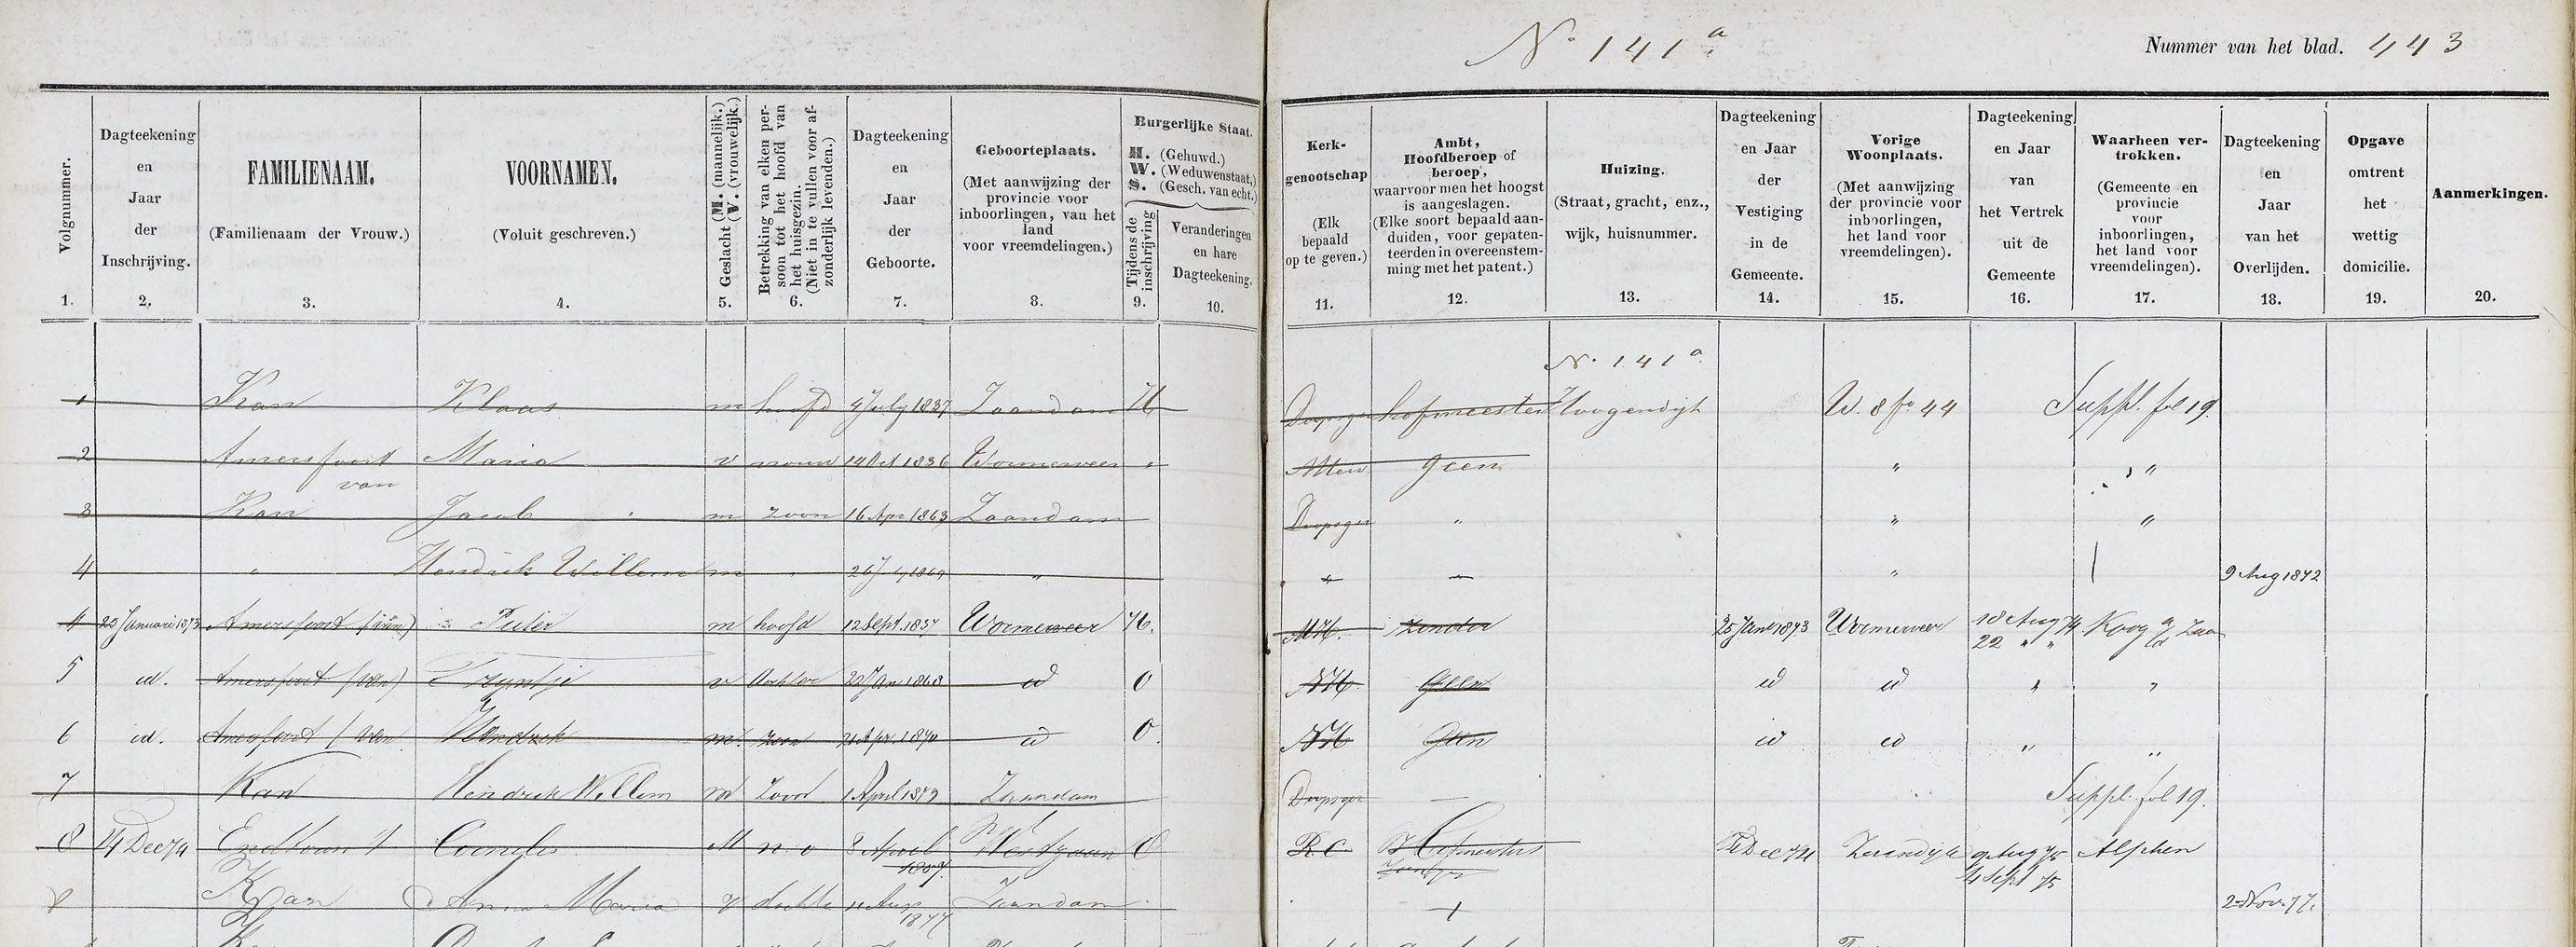 No 141a
Nummer van het blad. 443
Volgnummer.
1.
Dagteekening
en
Jaar
der
Inschrijving.
2.
FAMILIENAAM.
(Familienaam der Vrouw.)
3.
VOORNAMEN.
(Voluit geschreven.)
4.
Geslacht (M. (mannelijk.)
(V. (vrouwelijk.)
5.
Betrekking van elken per-
soon tot het hoofd van
het huisgezin.
(Niet in te vullen voor af-
zonderlijk levenden.)
6.
Dagteekening
en
Jaar
der
Geboorte.
7.
Geboorteplaats.
(Met aanwijzing der
provincie voor
inboorlingen, van het
land
voor vreemdelingen.)
8.
Burgerlijke Staat.
H. (Gehuwd.)
W. (Weduwenstaat,)
S. (Gesch. van echt.)
Tijdens de
inschrijving
9.
Veranderingen
en hare
Dagteekening.
10.
Kerk-
genootschap
(Elk
bepaald
op te geven.)
11.
Ambt,
Hoofdberoep of
beroep,
waarvoor men het hoogst
is aangeslagen.
(Elke soort bepaald aan-
duiden, voor gepaten-
teerden in overeenstem-
ming met het patent.)
12.
Huizing.
(Straat, gracht, enz.,
wijk, huisnummer.
13.
Dagteekening
en Jaar
der
Vestiging
in de
Gemeente.
14.
Vorige
Woonplaats.
(Met aanwijzing
der provincie voor
inboorlingen,
het land voor
vreemdelingen).
15.
Dagteekening
en Jaar
van
het Vertrek
uit de
Gemeente
16.
Waarheen ver-
trokken.
(Gemeente en
provincie
voor
inboorlingen,
het land voor
vreemdelingen).
17.
Dagteekening
en
Jaar
van het
Overlijden.
18.
Opgave
omtrent
het
wettig
domicilie.
19.
Aanmerkingen.
20.
No. 141a
1 Kan Klaas m hoofd 4 July 1837 Zaandam H Doopsgez hofmeester Hoogendijk W. 8 fo 44 Suppl. fol 19.
2 Amersfoort van Maria v vrouw 14 Oct 1836 Wormerveer " Geen " "
3 Kan Jacob m zoon 16 Apr 1863 Zaandam Doopsgez " " "
4 " Hendrik Willem m " " " 9 Aug 1872
4 25 Januari 1873 Amersfoort (van) Pieter m hoofd 12 Sept. 1837 Wormerveer H. NH. 25 Jan 1873 Wormerveer 18 Aug 74 Koog a/d Zaan
22 " "
5 id. Amersfoort (van) Tryntje v dochter 22 Jan 1868 id O NH. Geen id id " "
6 id. Amersfoort (van Hendrik m. zoon 21 Apr. 1870 id O. NH Geen id id " "
7 Kan Hendrik Willem m zoon 1 April 1873 Zaandam Doopsgez — Suppl. fol 19.
8 14 Dec 74 Cornelis M 8 April Westzaan O R.C. Hofmeester Dec 74 Zaandijk 9 Aug 75 Alphen
4 Sept 75
Kan Anna Maria v dochter 11 Aug 1877 Zaandam 2 Nov. 77.